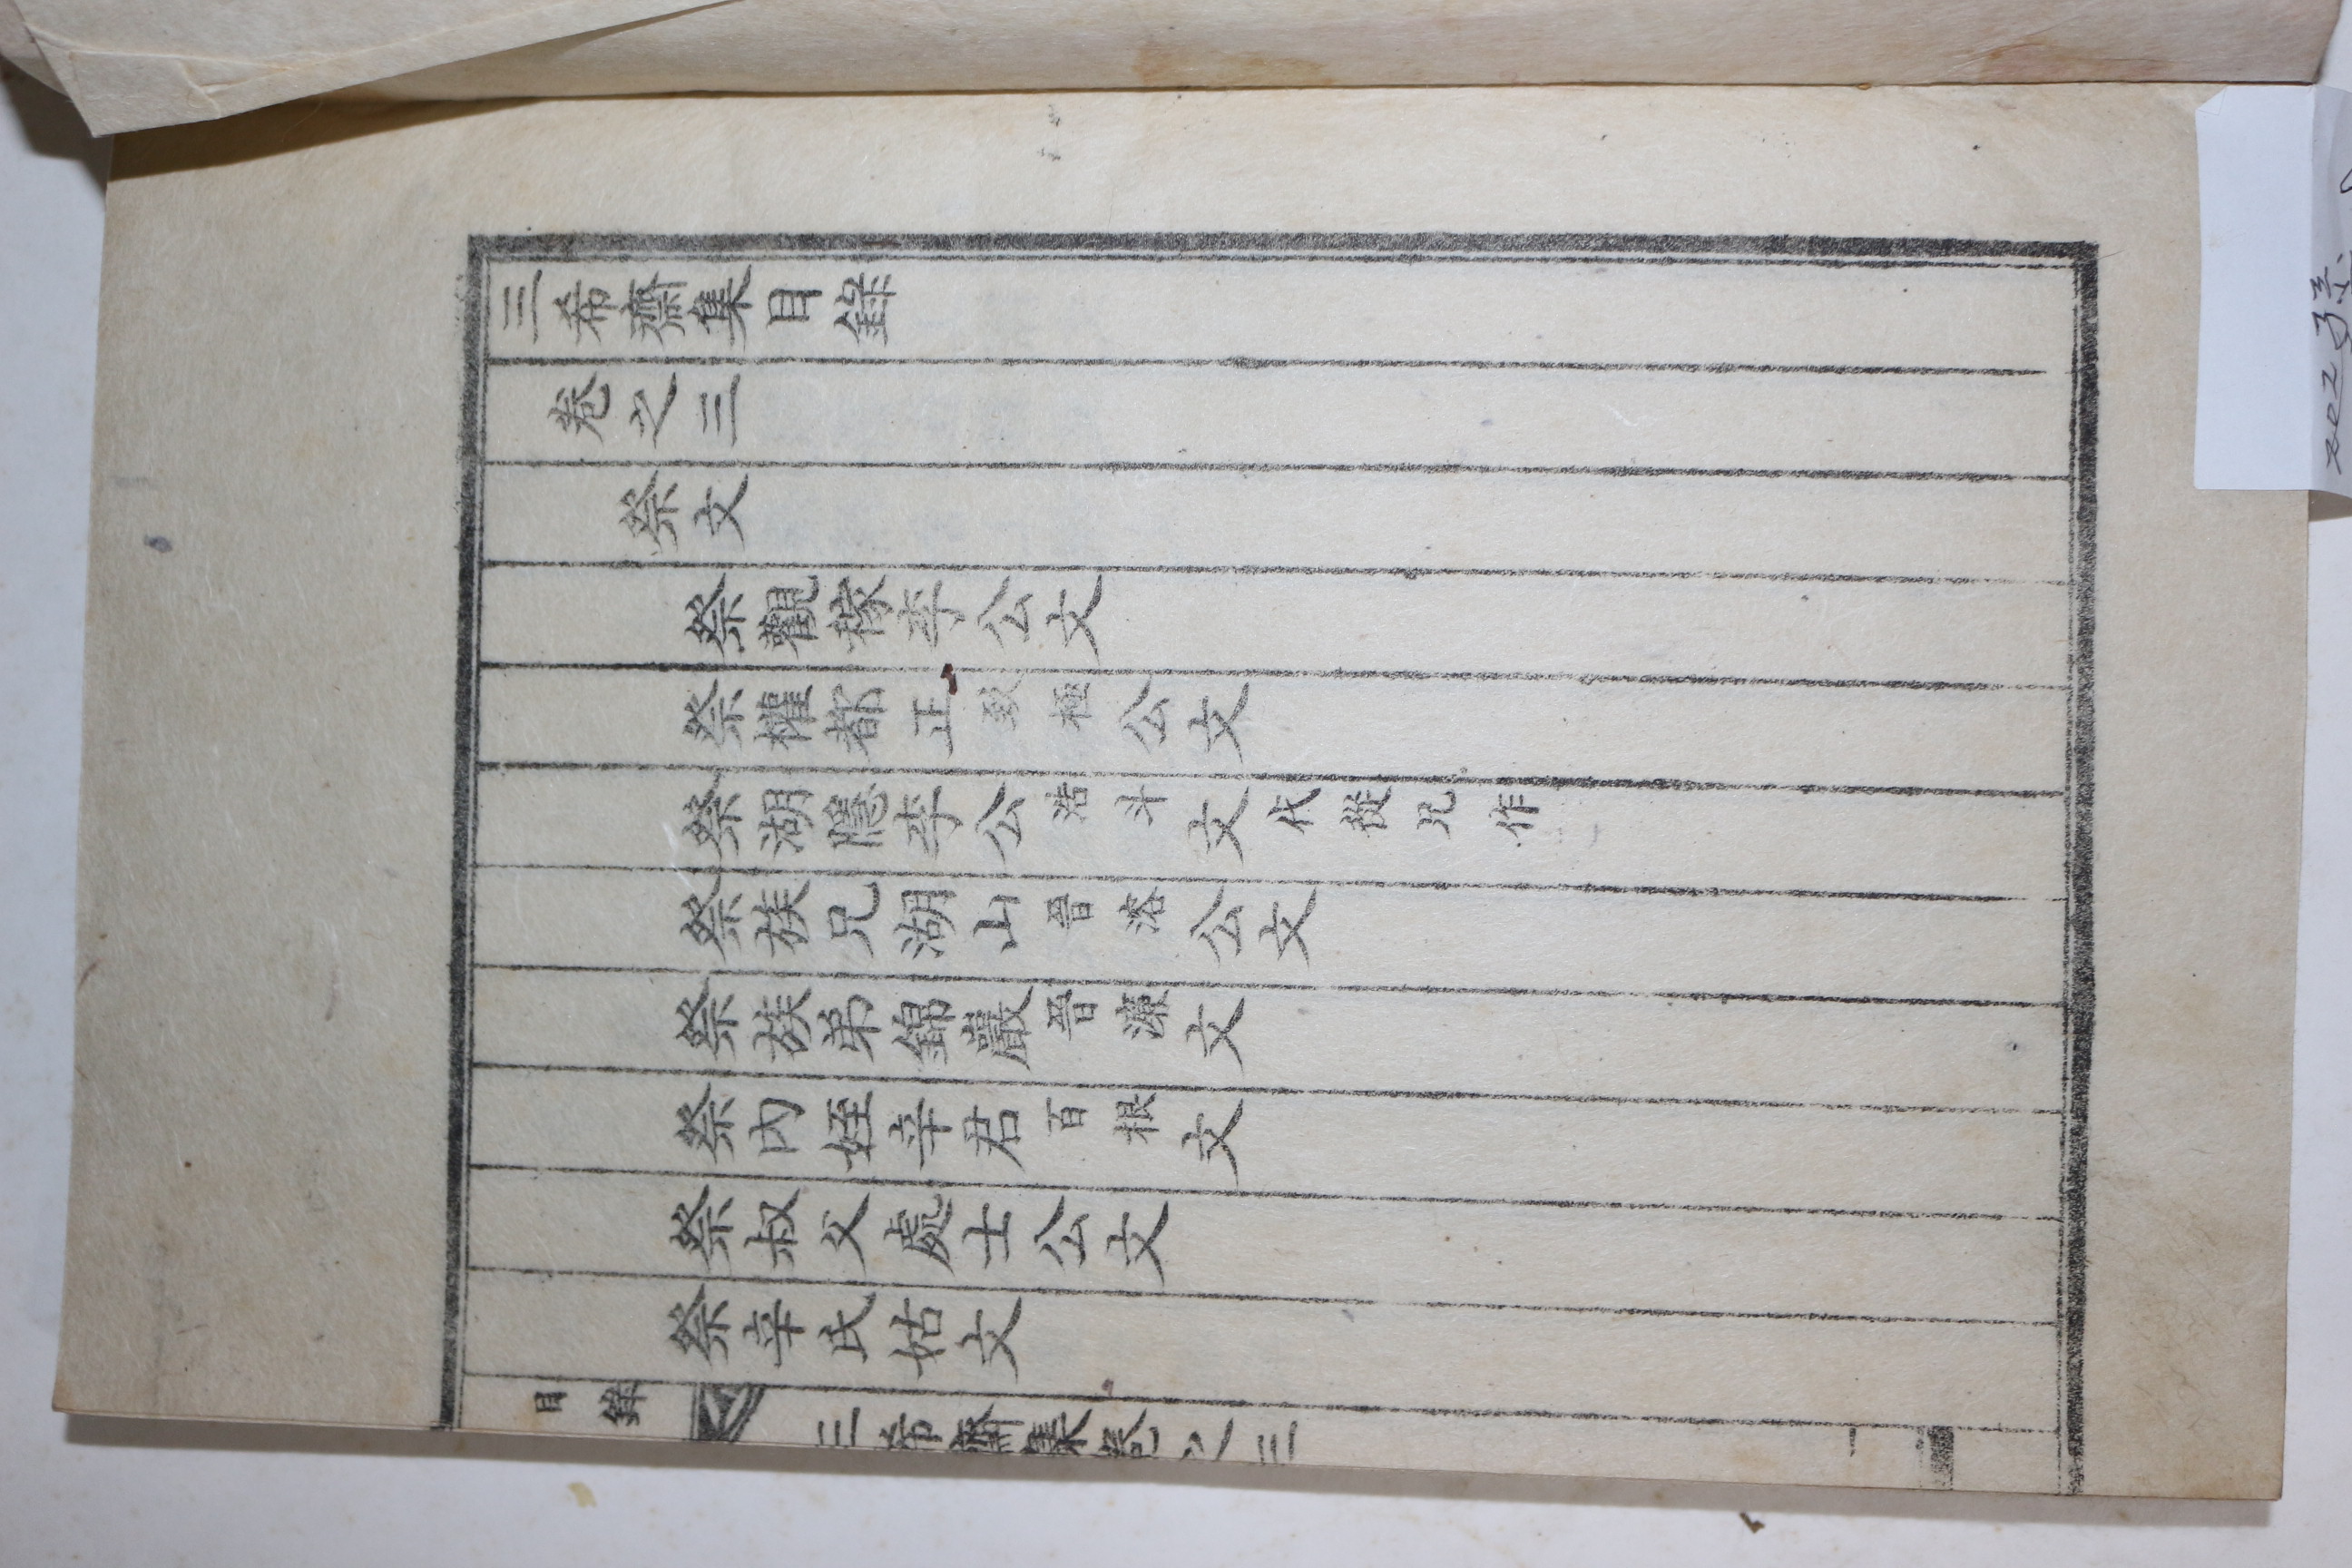 三希齋集目錄
卷之三
祭文
祭觀稼亭公文
祭權都正公文
祭湖隱亭公浩斗文代從兄作
祭族兄湖山晋洛公文
祭族弟錦巖晋源文
祭內姪辛君百根文
祭叔父處士公文
祭辛氏姑文
目錄
三希齋集卷之三
一